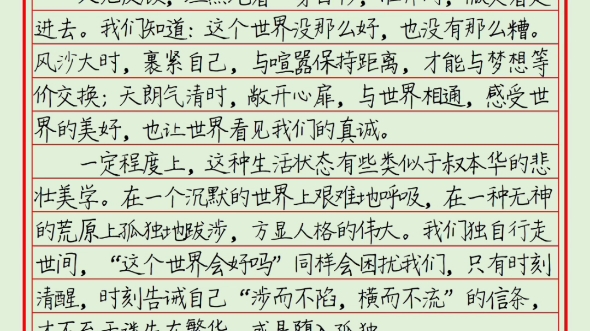 进去。我们知道：这个世界没那么好，也没有那么糟。
风沙大时，裹紧自己，与喧嚣保持距离，才能与梦想等
价交换；天朗气清时，敞开心扉，与世界相通，感受世
界的美好，也让世界看见我们的真诚。
一定程度上，这种生活状态有些类似于叔本华的悲
壮美学。在一个沉默的世界上艰难地呼吸，在一种无神
的荒原上孤独地跋涉，方显人格的伟大。我们独自行走
世间，“这个世界会好吗”同样会困扰我们，只有时刻
清醒，时刻告诫自己“涉而不陷，横而不流”的信条，